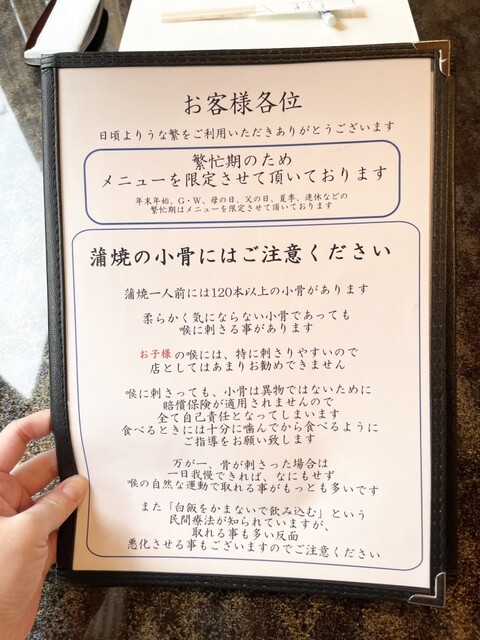 お客様各位
日頃よりうな繁をご利用いただきありがとうございます
繁忙期のため
メニューを限定させて頂いております
年末年始、G・W、母の日、父の日、夏季、連休などの
繁忙期はメニューを限定させて頂いております
蒲焼の小骨にはご注意ください
蒲焼一人前には120本以上の小骨があります
柔らかく気にならない小骨であっても
喉に刺さる事があります
お子様の喉には、特に刺さりやすいので
店としてはあまりお勧めできません
喉に刺さっても、小骨は異物ではないために
賠償保険が適用されませんので
全て自己責任となってしまいます
食べるときには十分に噛んでから食べるように
ご指導をお願い致します
万が一、骨が刺さった場合は
一日我慢できれば、なにもせず
喉の自然な運動で取れる事がもっとも多いです
また「白飯をかまないで飲み込む」という
民間療法が知られていますが、
取れる事も多い反面
悪化させる事もございますのでご注意ください